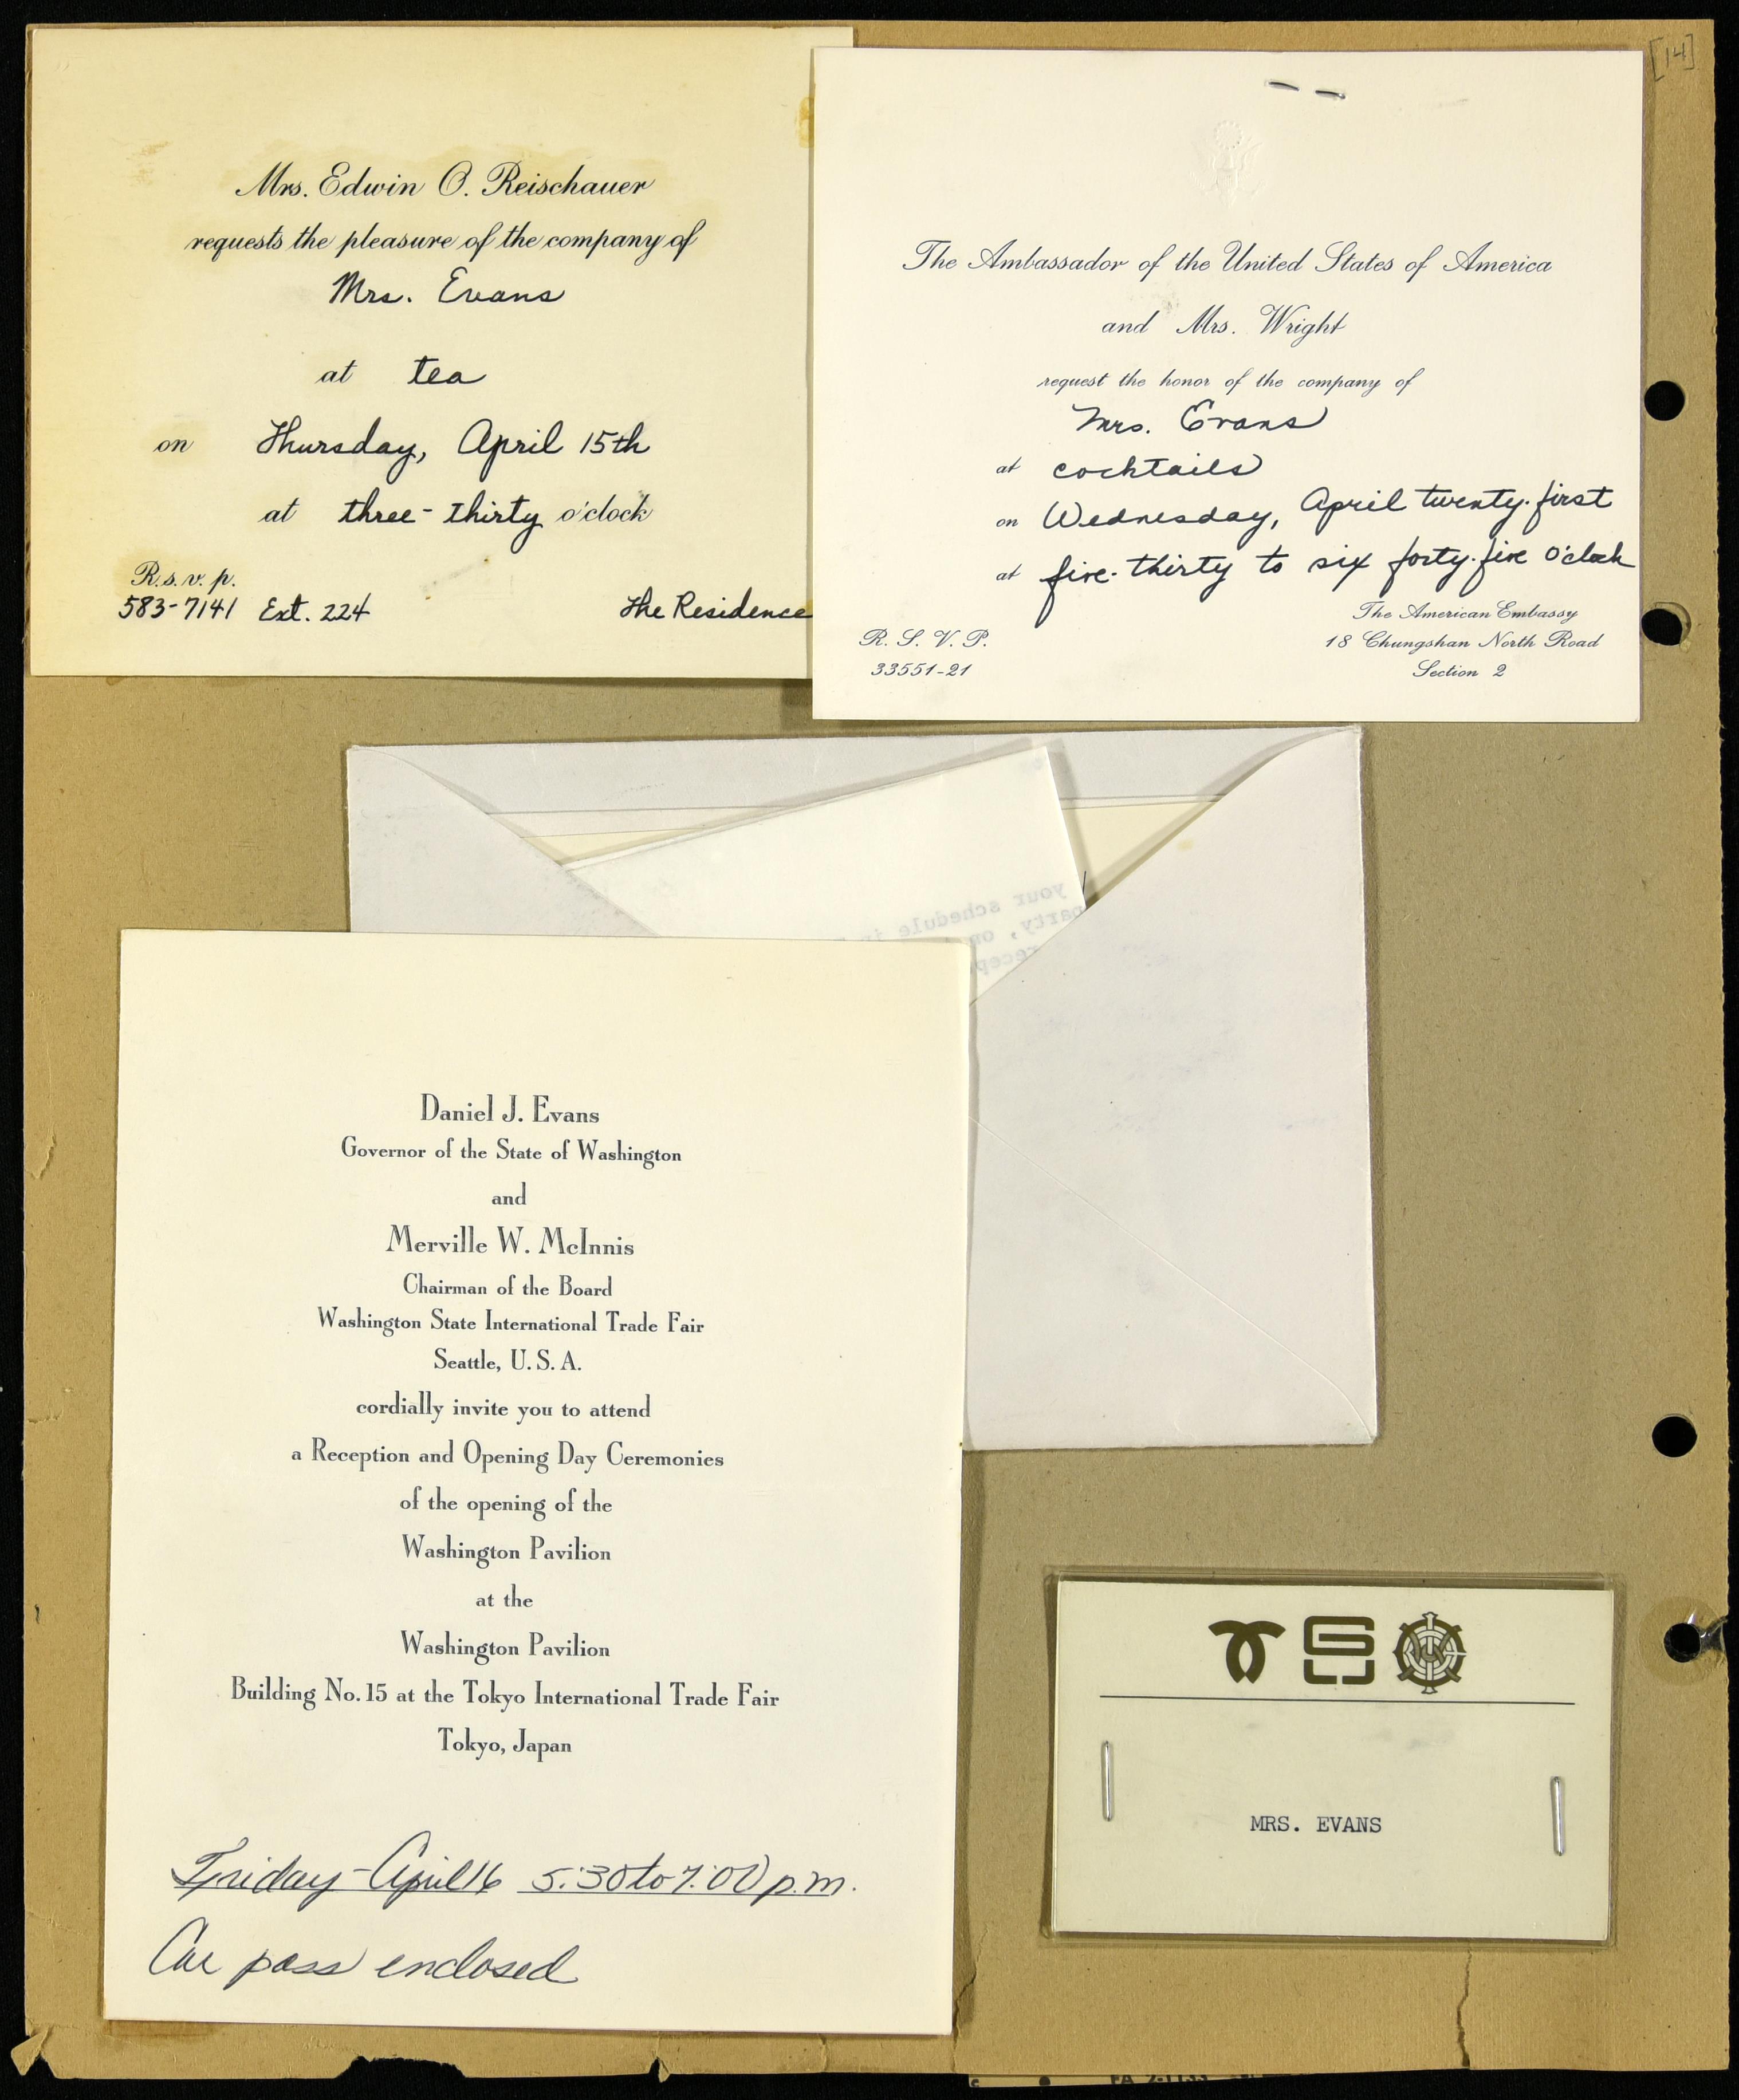 [14]
Mrs. Edwin O. Reischauer
requests the pleasure of the company of
Mrs. Evans
at tea
on Thursday, April 15th
at three-thirty o'clock
R.s.v.p.
583-7141 Ext. 224
The Residence
The Ambassador of the United States of America
and Mrs. Wright
request the honor of the company of
Mrs. Evans
at cocktails
on Wednesday, April twenty-first
at five-thirty to six forty-five o'clock
The American Embassy
18 Chungshan North Road
Section 2
R. S. V. P.
33551-21
your schedule
party, on
recep
Daniel J. Evans
Governor of the State of Washington
and
Merville W. McInnis
Chairman of the Board
Washington State International Trade Fair
Seattle, U.S.A.
cordially invite you to attend
a Reception and Opening Day Ceremonies
of the opening of the
Washington Pavilion
at the
Washington Pavilion
Building No. 15 at the Tokyo International Trade Fair
Tokyo, Japan
Friday - April 16 5:30 to 7:00 p.m.
Car pass enclosed
MRS. EVANS